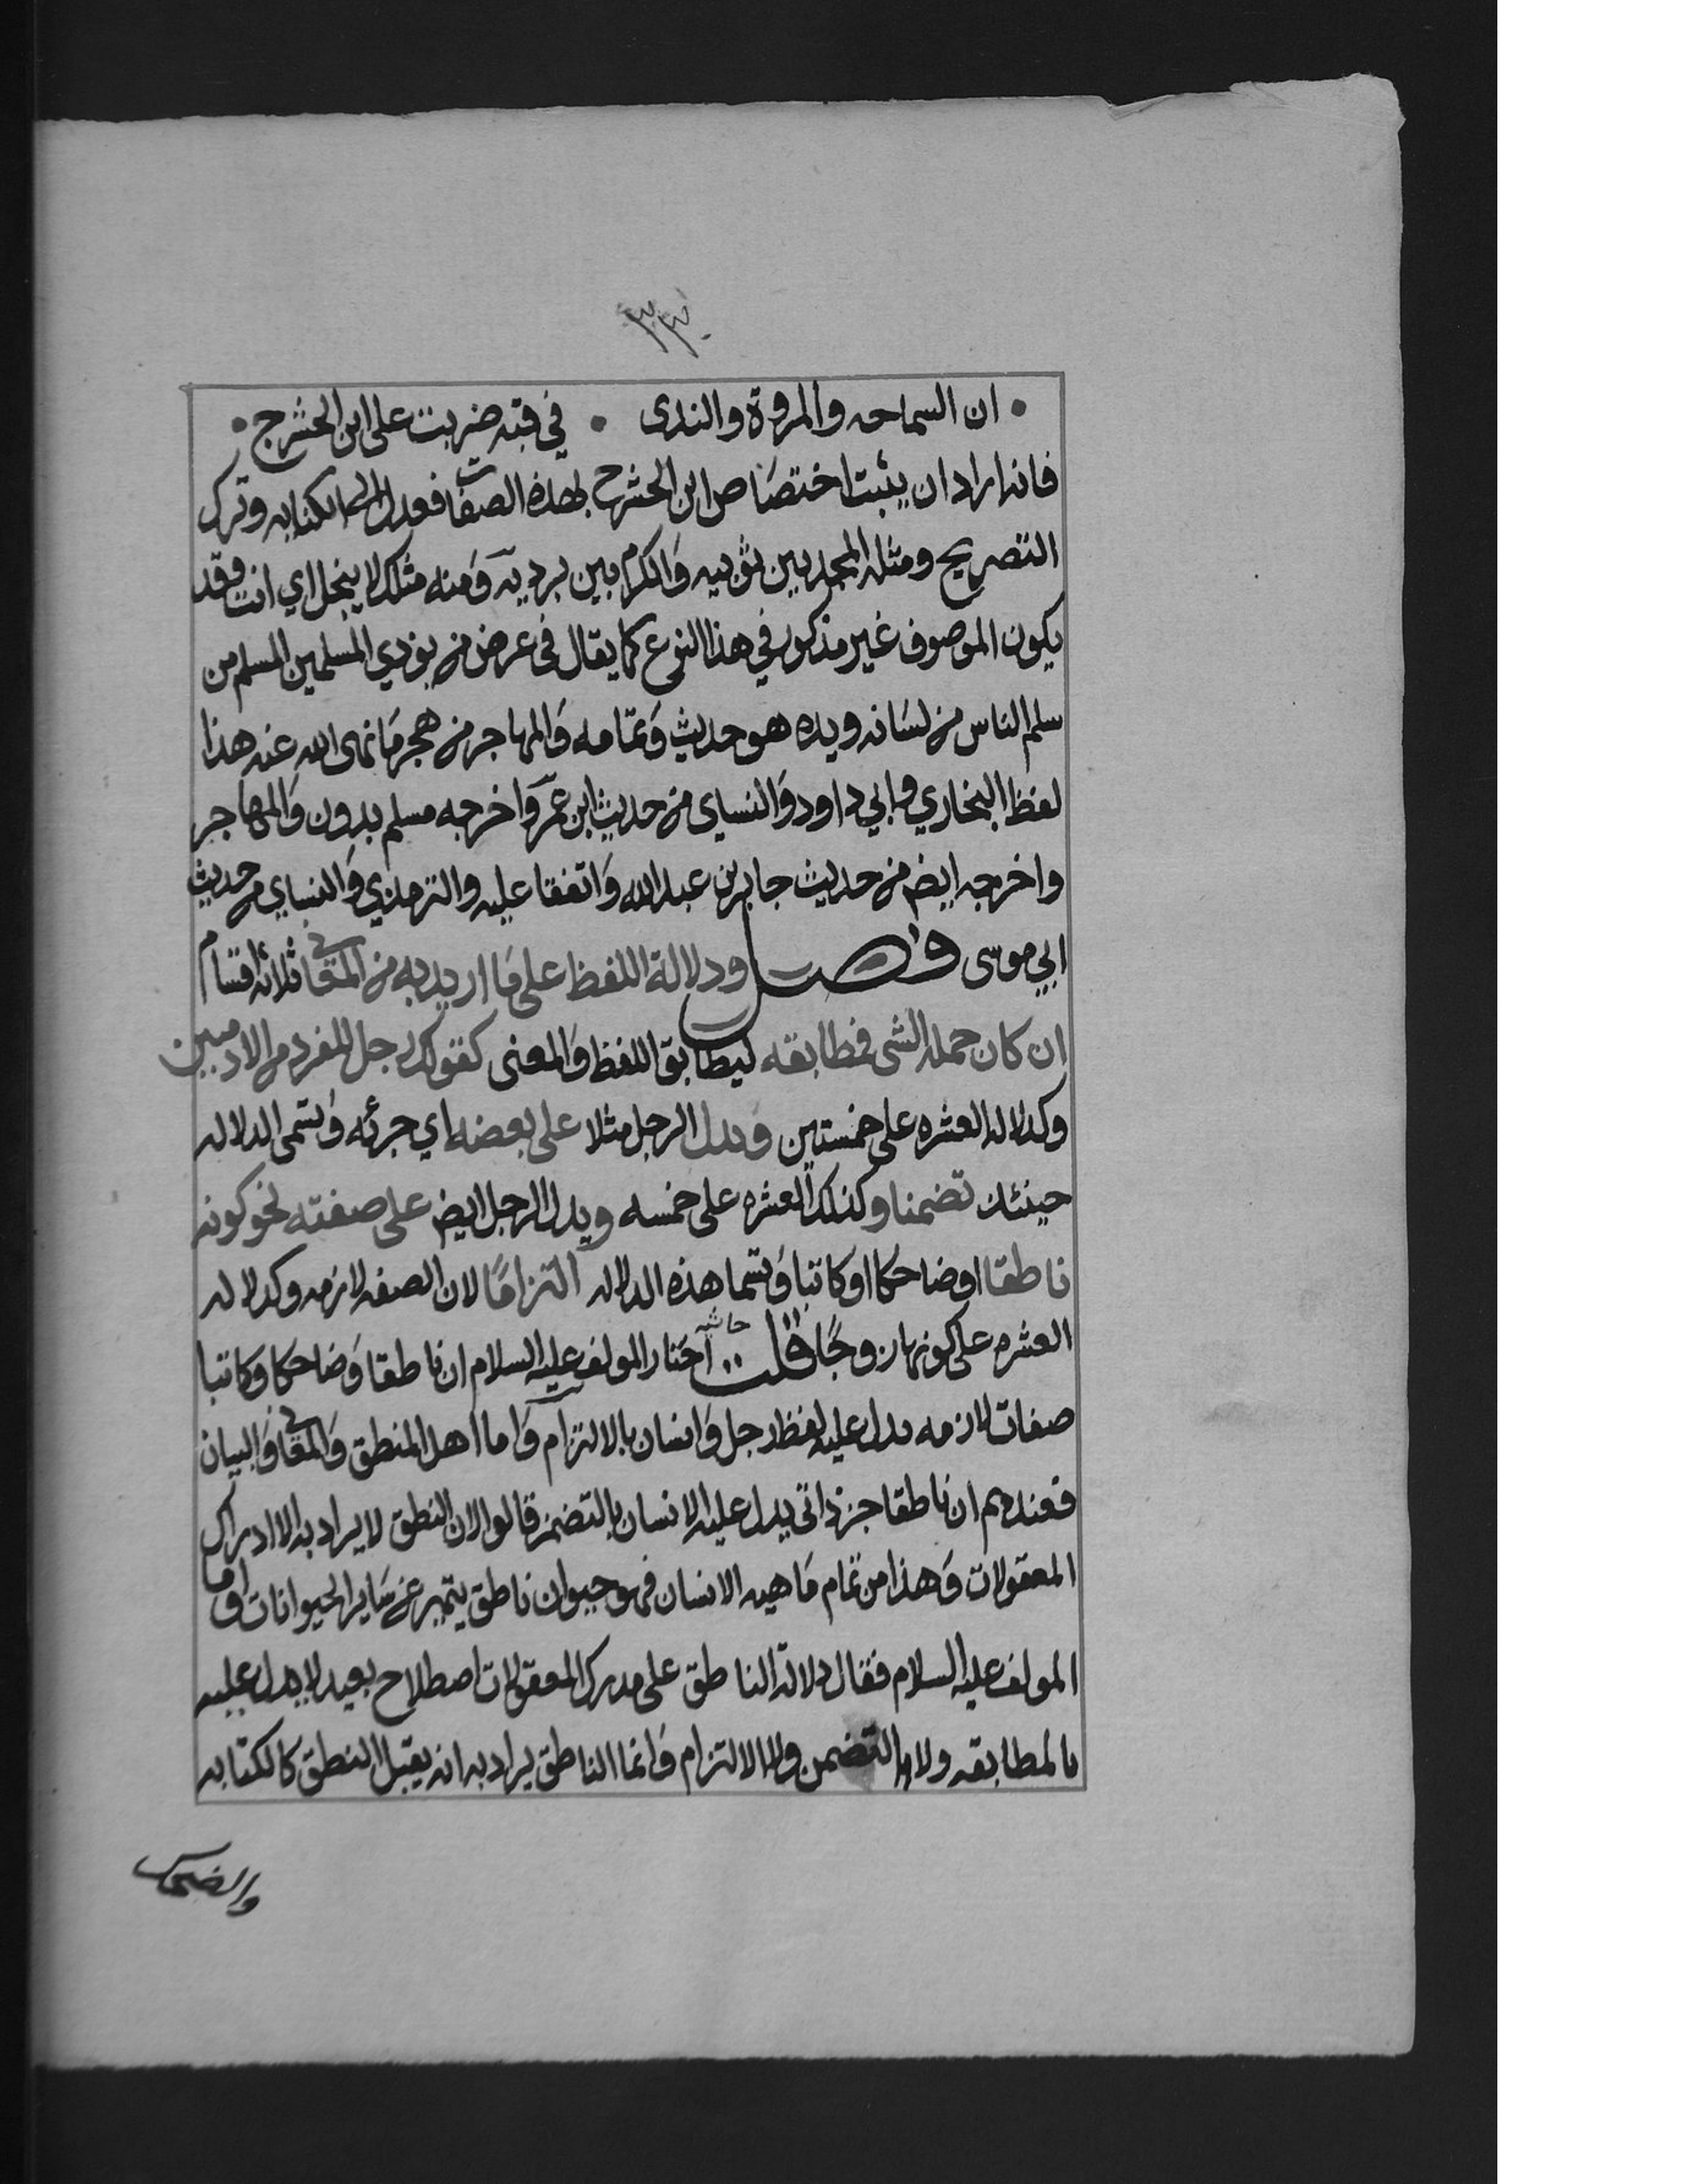 ٣٣٠
• ان السماحه والمروة والندى • في قبه ضربت على ابن الحشرج •
فانه اراد ان يثبت اختصاص ابن الحشرج بهذه الصفات فعدل الى الكنايه وترك
التصريح ومثله المجد بين ثوبيه والكرم بين برديه ومنه مثلك لا يبخل اي انت وقد
يكون الموصوف غير مذكور في هذا النوع كما يقال في عرض من يوذي المسلمين المسلم من
سلم الناس من لسانه ويده هو حديث وتمامه والمهاجر من هجر ما نهى الله عنه هذا
لفظ البخاري وابي داود والنساي من حديث ابن عمر واخرجه مسلم بدون والمهاجر
واخرجه ايض من حديث جابر بن عبد الله واتفقا عليه والترمذي والنساي من حديث
ابي موسى فصل ودلالة اللفظ على ما اريد به من المعاني ثلاثه اقسام
ان كان جملة الشي فمطابقه ليطابق اللفظ والمعنى كقولك رجل للفرد من الادميين
وكدلاله العشره على خمستين ويدل الرجل مثلا على بعضه اي جزئه وتسمى الدلاله
حينئذ تضمنا وكذلك العشره على خمسه ويدل الرجل ايض على صفته نحو كونه
ناطقا او ضاحكا او كاتبا وتسما هذه الدلاله التزامًا لان الصفه لازمه وكدلاله
العشره على كونها زوجًا قلت حاشيه اختار المولف عليه السلام ان ناطقا وضاحكا وكاتبا
صفات لازمه يدل عليه لفظ رجل وانسان بالالتزام واما اهل المنطق والمعاني والبيان
فعندهم ان ناطقا جز ذاتي يدل عليه الانسان بالتضمن قالوا لان النطق لا يراد به الا ادراك
المعقولات وهذا من تمام ماهيه الانسان فهو حيوان ناطق يتميز عن ساير الحيوانات واما
المولف عليه السلام فقال دلالة الناطق على مدرك المعقولات اصطلاح بعيد لا يدل عليه
بالمطابقه ولا بالتضمن ولا الالتزام وانما الناطق يراد به انه يقبل النطق كالكتابه
والضحك